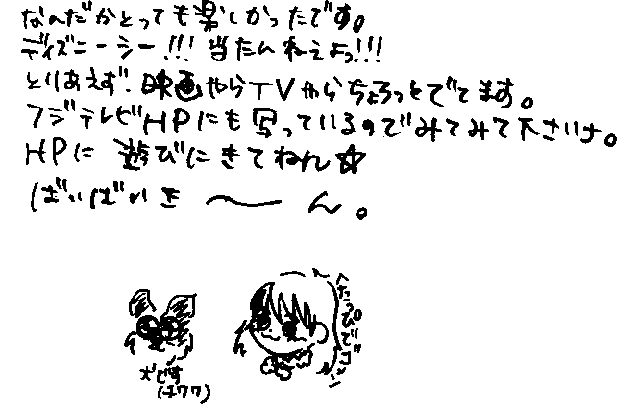 なんだかとっても楽しかったです。
ディズニーシー!!! 当たんねえよっ!!!
とりあえず、映画やらTVやらちょろっとでてます。
フジテレビHPにも写っているのでみてみて下さいナ。
HPに遊びにきてねん☆
ばいばいき〜ん。
犬です